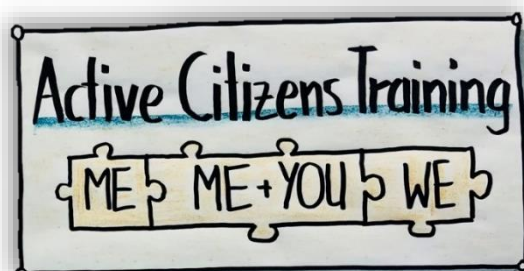 Active Citizens Training
ME ME+YOU WE